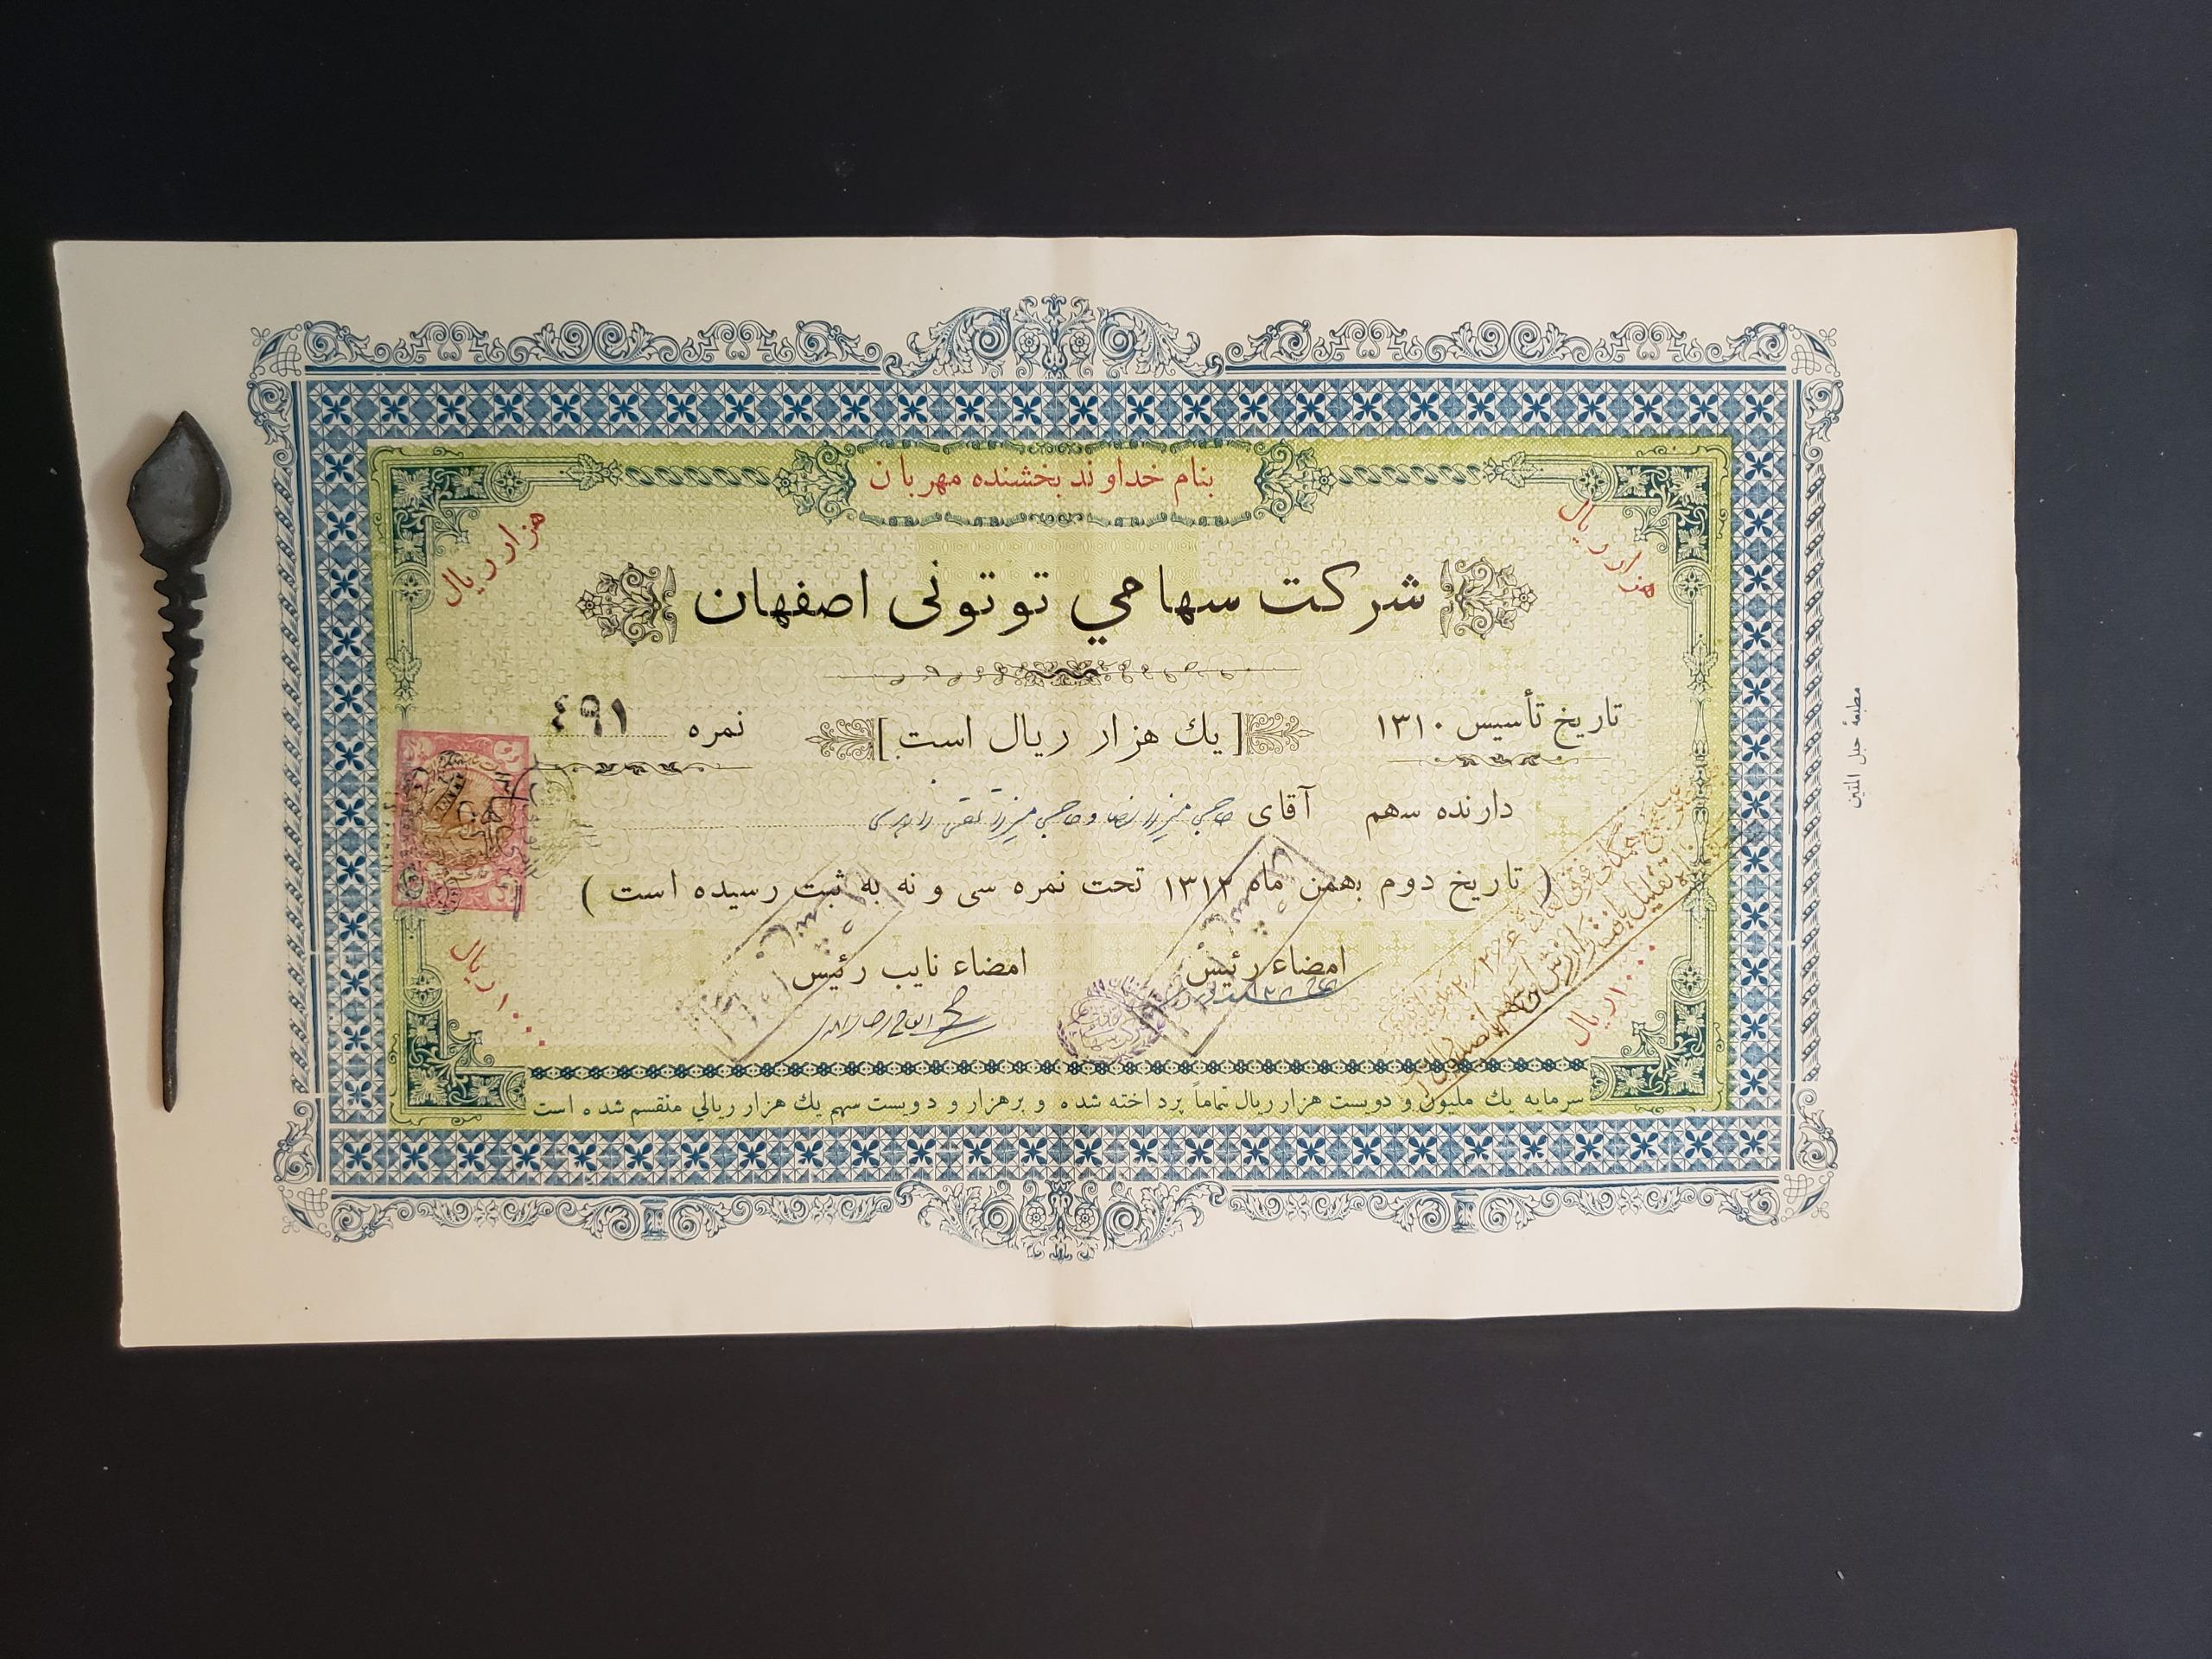 بنام خداوند بخشنده مهربان
هزار ریال
هزار ریال
شركت سهامي توتونی اصفهان
تاریخ تأسیس ۱۳۱۰
[یك هزار ریال است]
نمره ٤٩١
دارنده سهم آقای حاجی میرزا رضا و حاجی میرزا تقی
(تاریخ دوم بهمن ماه ۱۳۱۲ تحت نمره سی و نه به ثبت رسیده است)
امضاء رئیس
امضاء نایب رئیس
۱۰۰۰ ریال
۱۰۰۰ ریال
سرمایه یك ملیون و دویست هزار ریال تماماً پرداخته شده و برهزار و دویست سهم یك هزار ریالي منقسم شده است
مطبعهٔ حبل المتین